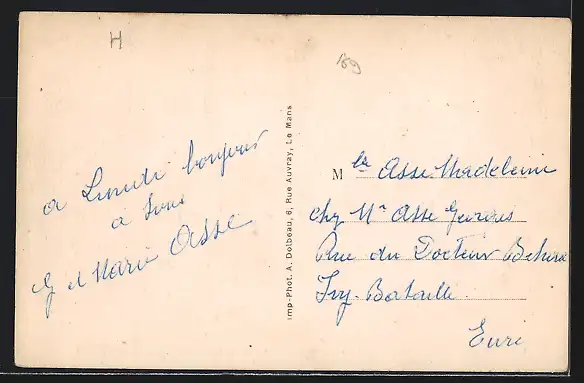 H
189
a Lundi bonjour
a tous
G et Marie Asse
Imp-Phot. A. Dolbeau, 6, Rue Auvray, Le Mans
Mlle Asse Madeleine
chez Mr Asse
Rue du Docteur
Ivry-Bataille
Eure